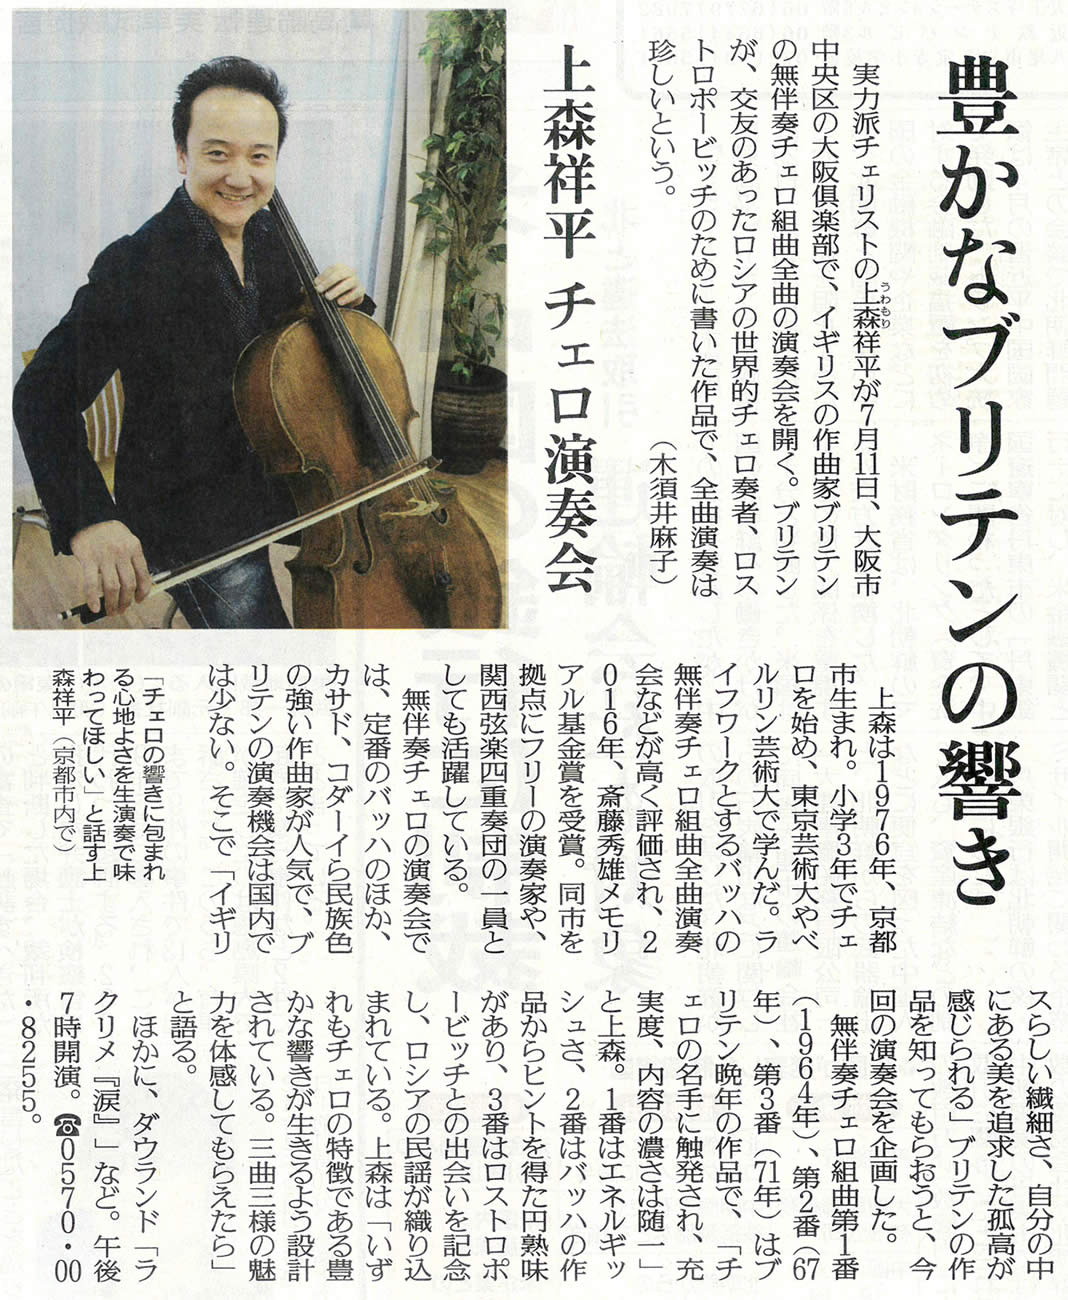 豊かなブリテンの響き
上森祥平 チェロ演奏会
　実力派チェリストの上森祥平が7月11日、大阪市
うわもり
中央区の大阪倶楽部で、イギリスの作曲家ブリテン
の無伴奏チェロ組曲全曲の演奏会を開く。ブリテン
が、交友のあったロシアの世界的チェロ奏者、ロス
トロポービッチのために書いた作品で、全曲演奏は
珍しいという。
（木須井麻子）
　上森は1976年、京都
市生まれ。小学3年でチェ
ロを始め、東京芸術大やベ
ルリン芸術大で学んだ。ラ
イフワークとするバッハの
無伴奏チェロ組曲全曲演奏
会などが高く評価され、2
016年、斎藤秀雄メモリ
アル基金賞を受賞。同市を
拠点にフリーの演奏家や、
関西弦楽四重奏団の一員と
しても活躍している。
　無伴奏チェロの演奏会で
は、定番のバッハのほか、
カサド、コダーイら民族色
の強い作曲家が人気で、ブ
リテンの演奏機会は国内で
は少ない。そこで「イギリ
スらしい繊細さ、自分の中
にある美を追求した孤高が
感じられる」ブリテンの作
品を知ってもらおうと、今
回の演奏会を企画した。
　無伴奏チェロ組曲第1番
（1964年）、第2番（67
年）、第3番（71年）はブ
リテン晩年の作品で、「チ
ェロの名手に触発され、充
実度、内容の濃さは随一」
と上森。1番はエネルギッ
シュさ、2番はバッハの作
品からヒントを得た円熟味
があり、3番はロストロポ
ービッチとの出会いを記念
し、ロシアの民謡が織り込
まれている。上森は「いず
れもチェロの特徴である豊
かな響きが生きるよう設計
されている。三曲三様の魅
力を体感してもらえたら」
と語る。
　ほかに、ダウランド「ラ
クリメ『涙』」など。午後
7時開演。☎0570・00
・8255。
「チェロの響きに包まれ
る心地よさを生演奏で味
わってほしい」と話す上
森祥平（京都市内で）